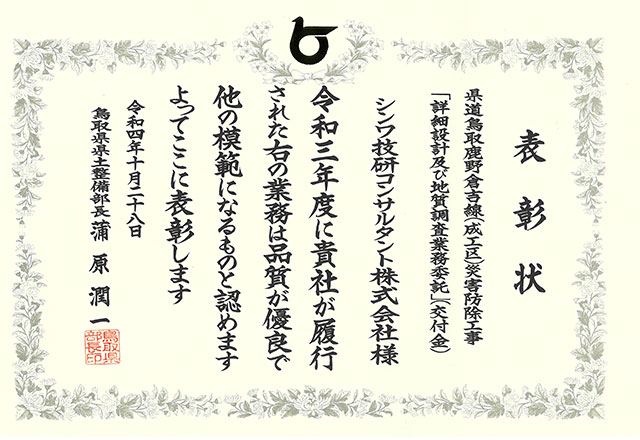 表彰状
県道鳥取鹿野倉吉線(成工区)災害防除工事
「詳細設計及び地質調査業務委託」(交付金)
シンワ技研コンサルタント株式会社様
令和三年度に貴社が履行
された右の業務は品質が優良で
他の模範になるものと認めます
よってここに表彰します
令和四年十月二十八日
鳥取県県土整備部長 蒲原潤一
鳥取県
部長印